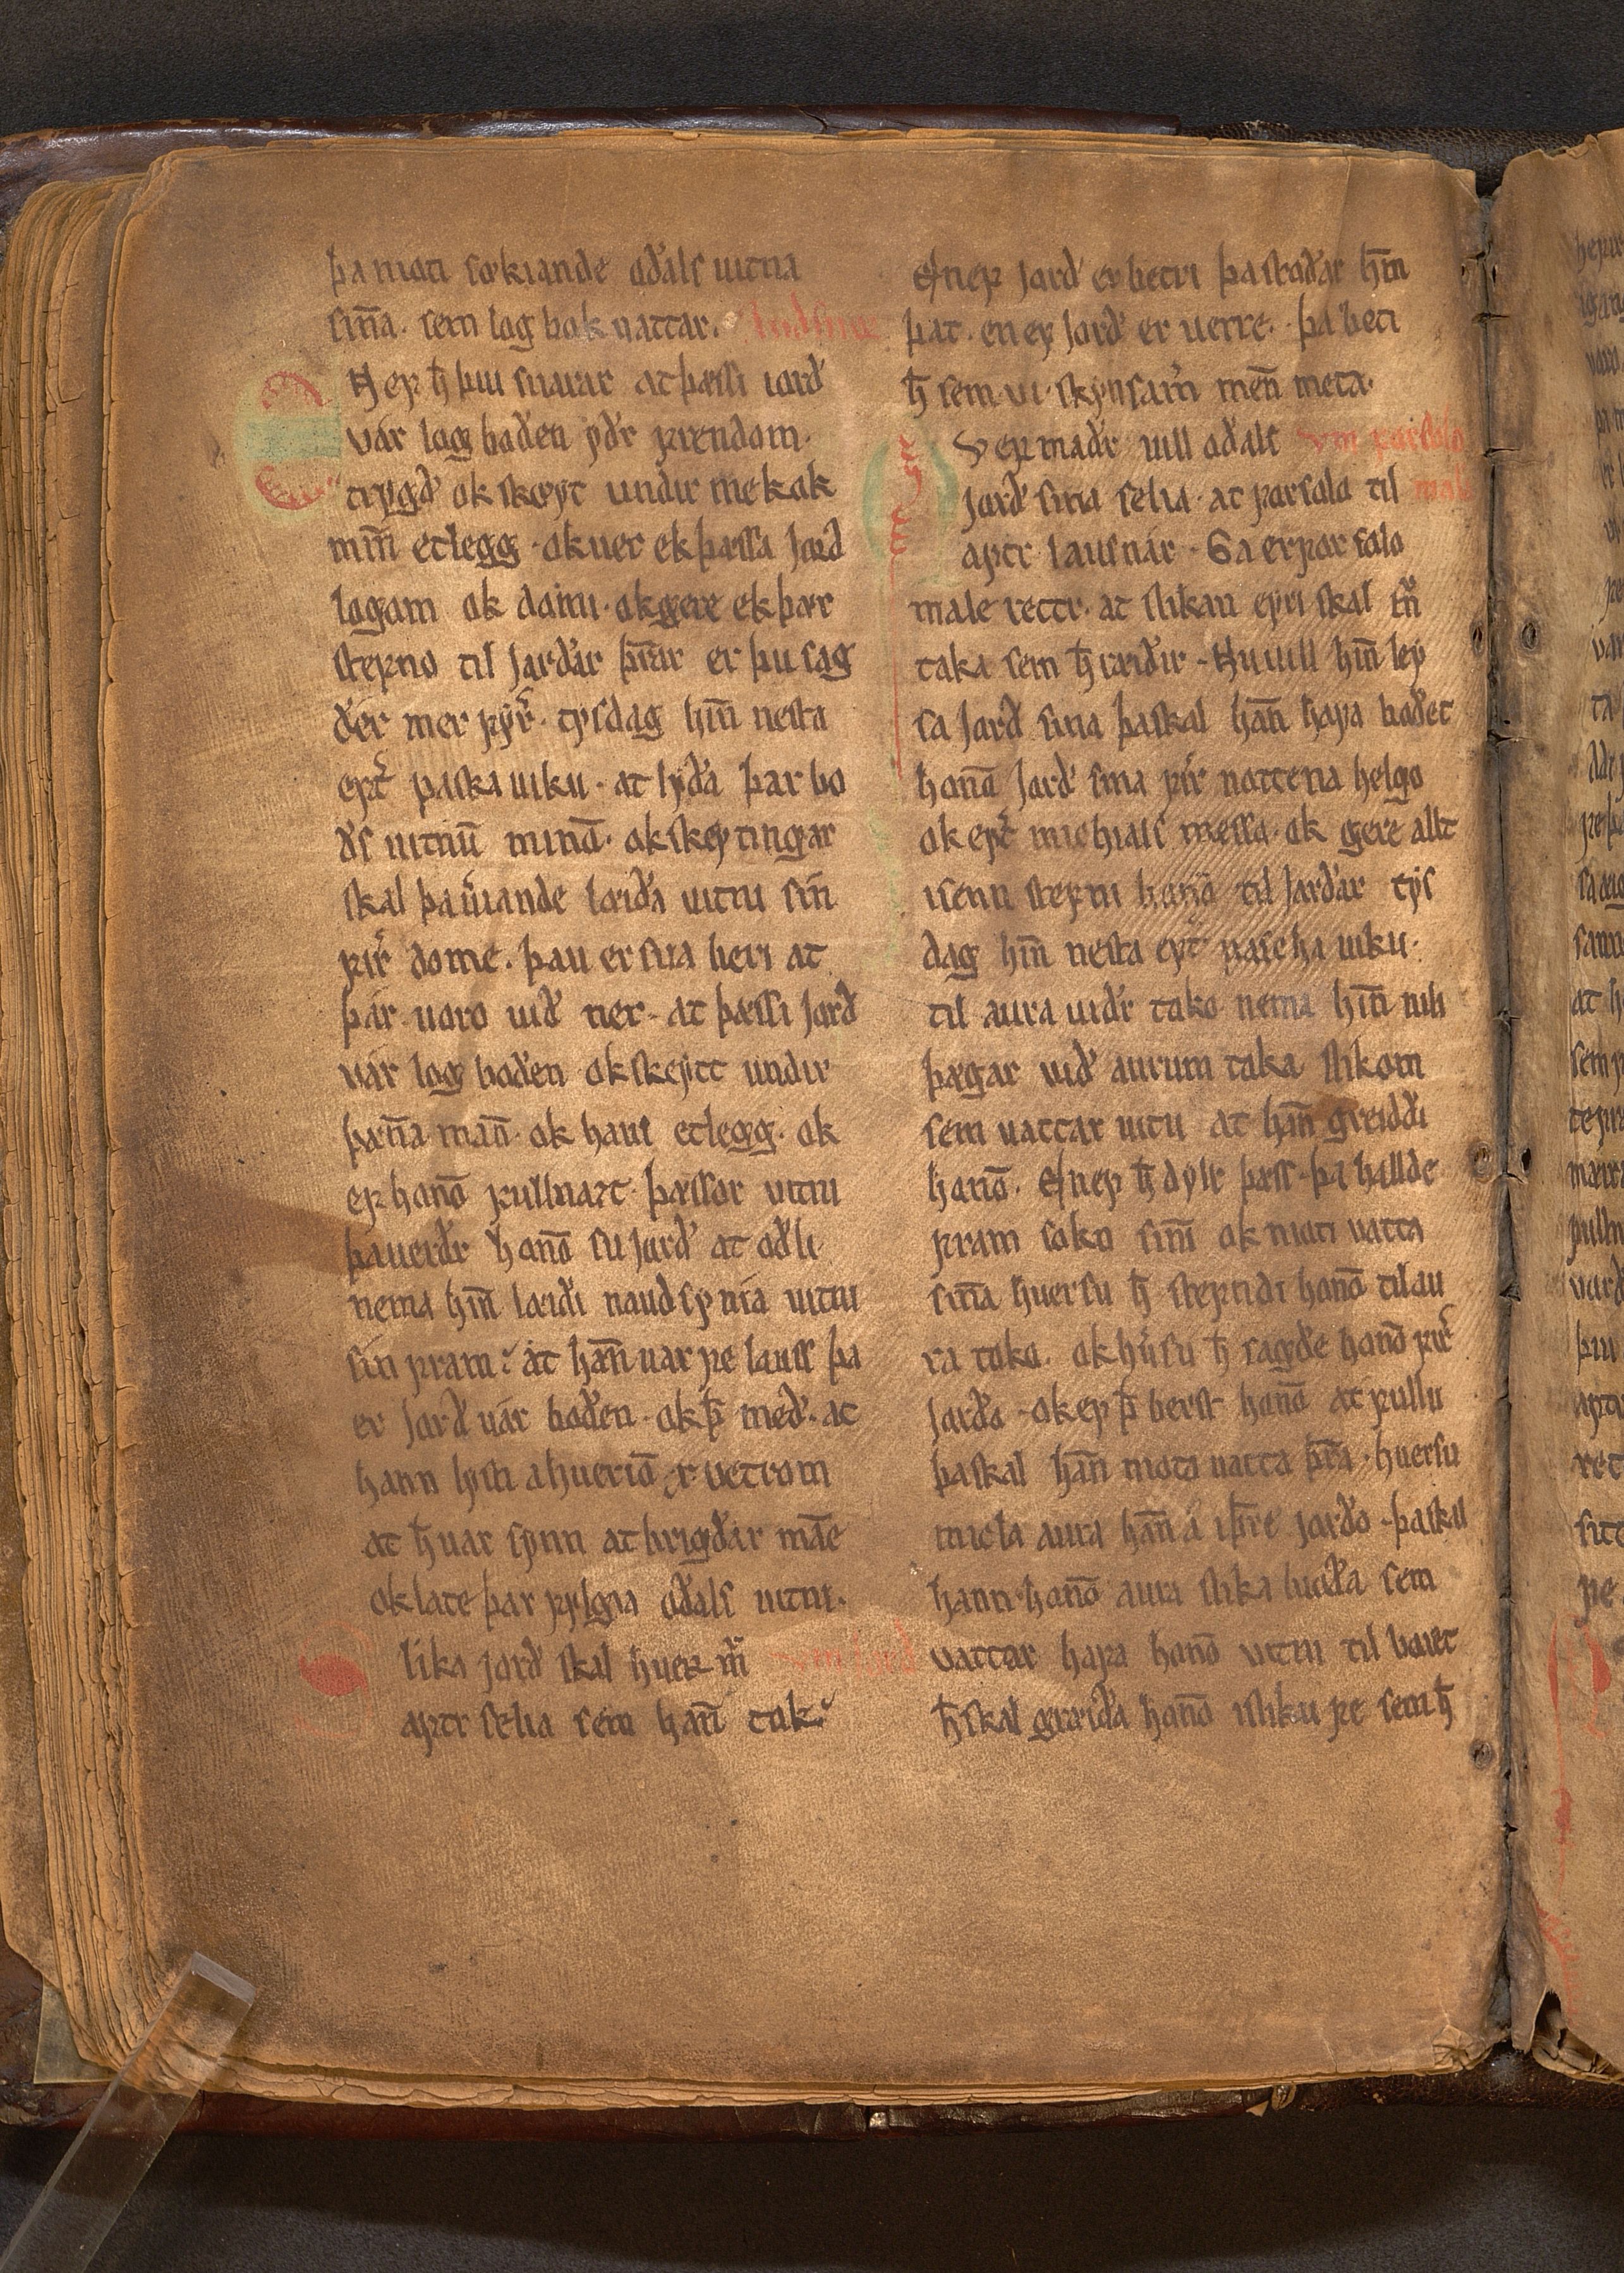 þa nioti sǿkiande oðals uitna
sin̅a. sem log bok uattar.
N ef h̅ þui suarar at þæssi iord
var log boðen yðr frendom.
trygð ok skøyt undir mek ok
min̅ etlegg. ok uer ek þæssa Jord
logom ok domi. ok gere ek þær
stefno til Jarðar þr̅ar er þu sag
ðer mer fyr͛. tysdag hin̅ nesta
eft͛ paska uiku. at lyða þar bo
ðs uitnu̅ mino̅. ok skeytingar
skal þa u͛iande læiða uitni sin̅
fir͛ dome. þau er sua beri at
þar uoro uið ner. at þæssi Jord
var log boðen ok skeytt undir
þæn̅a man̅. ok hans etlegg. ok
ef hano̅ fullnazt þæssor uitni
þa uerðr hano̅ su Jord at oðli
nema hin̅ læiði naudsynia uitni
sin fram. at han̅ uar fe lauss þa
er Jord uar boðen. ok þ̅ með. at
hann lysti a huerio̅ x uetrom
at h̅ uar synn at brigðar man̅e
ok late þar fylgia oðals uitni.
lika jord skal huer m̅
aftr selia sem han̅ tok.
En ef Jord er betri þa skoðar hin̅
þat. en ef Jord er uerre. þa beti
h̅ sem vi. skynsam͛ men̅ meta.
v ef maðr uill oðals vm forsolo
Jord sina selia. at forsolo til mal
aftr lausnar. Sa er forsolo
male rettr. at slikan eyri skal m̅
taka sem h̅ ræiðir. Nu uill hin̅ løy
sa Jord sina þa skal han̅ hafa boðet
hano̅ Jord sina fir͛ nottena helgo
ok eft͛ michials messo. ok gere allt
isenn stefni hano̅ til Jarðar tys
dag hin̅ nesta eft͛ pascha uiku.
til aura uiðr toko nema hin̅ uili
þægar við aurum taka slikom
sem uattar uitu at hin̅ greiddi
hano̅. En ef h̅ dylr þæss. þa hallde
fram sokn sin̅i ok nioti uatta
sin̅a huersu h̅ stefndi hano̅ til au
ra toko. ok hu͛su h̅ sagde hano̅ fir͛
Jarðo. ok ef þ̅ berst hano̅ at fullu
þa skal han̅ niota uatta þr̅a. huersu
micla aura han̅ a i þr̅e jorðo. þa skal
hann hano̅ aura slika biuða sem
vattar hafa hano̅ vitni til borit
h̅ skal græiða hano̅ isliku fe sem h̅